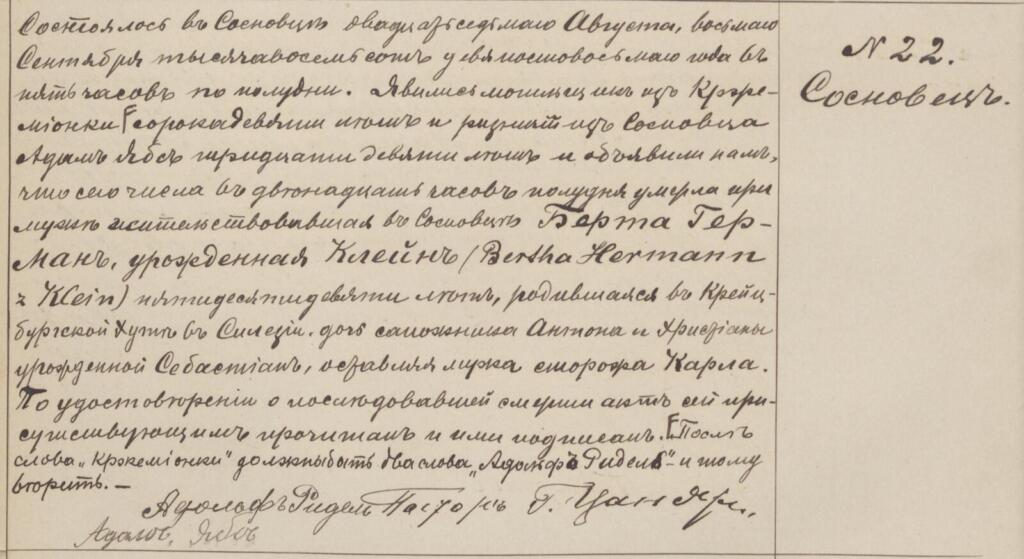 Состоялось въ Сосновцѣ двадцать седьмаго Августа, восьмаго
Сентября тысяча восемь сотъ девяносто восьмаго года въ
пять часовъ по полудни. Явились изъ Крже-
міонки сорока девяти лѣтъ и изъ Сосновца
Адамъ Ябсъ тридцати девяти лѣтъ и объявили намъ,
что сего числа въ двѣнадцать часовъ полудня умерла при
мужѣ жительствовавшая въ Сосновцѣ Берта Гер-
манъ, урожденная Клейнъ (Bertha Hermann
z Klein) пятидесяти девяти лѣтъ, родившаяся въ Крейц-
бургской Хутѣ въ Силезіи. дочь сапожника Антона и Христіаны
урожденной Себастіанъ, оставляя мужа сторожа Карла.
По удостовѣреніи о послѣдовавшей смерти актъ сей при-
сутствующимъ прочитанъ и ими подписанъ. Послѣ
слова „Кржеміонки" должны быть два слова „Адольфъ Ридель" и тому
вѣрить. —
Адольфъ Ридель Пасторъ Г. Цандеръ
Адамъ Ябсъ
N 22.
Сосновецъ.